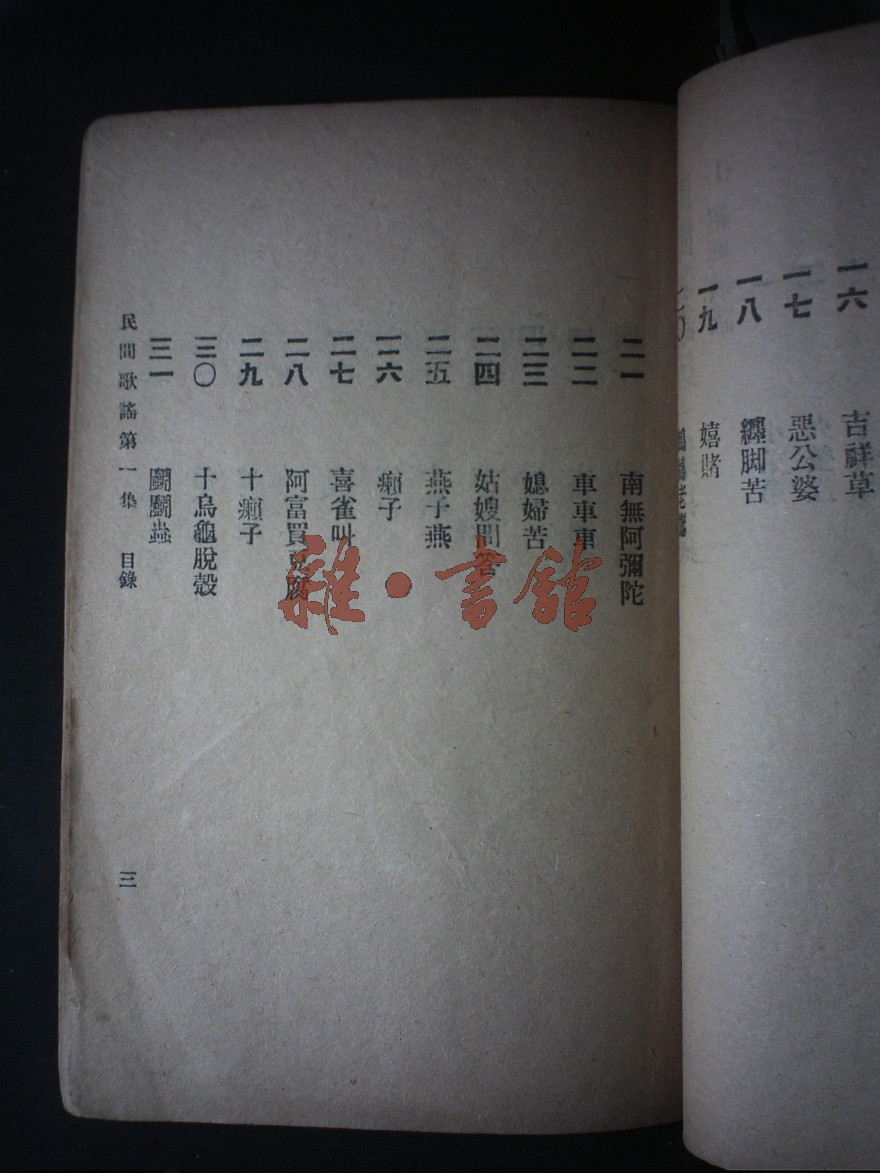 一六 吉祥草
一七 惡公婆
一八 纏脚苦
一九 嬉賭
二一 南無阿彌陀
二二 車車車
二三 媳婦苦
二四 姑嫂問答
二五 燕子燕
二六 癩子
二七 喜雀叫
二八 阿富買豆腐
二九 十癩子
三〇 十烏龜脫殼
三一 鬭鬭蟲
民間歌謠第一集 目錄
三
雜·書館